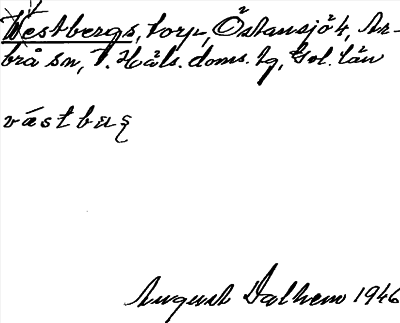 Westbergs, torp, Östansjö 4, Ar-
brå sn, V. Häls. doms. tg, Gvl. län
västbärg
August Dalhem 1946